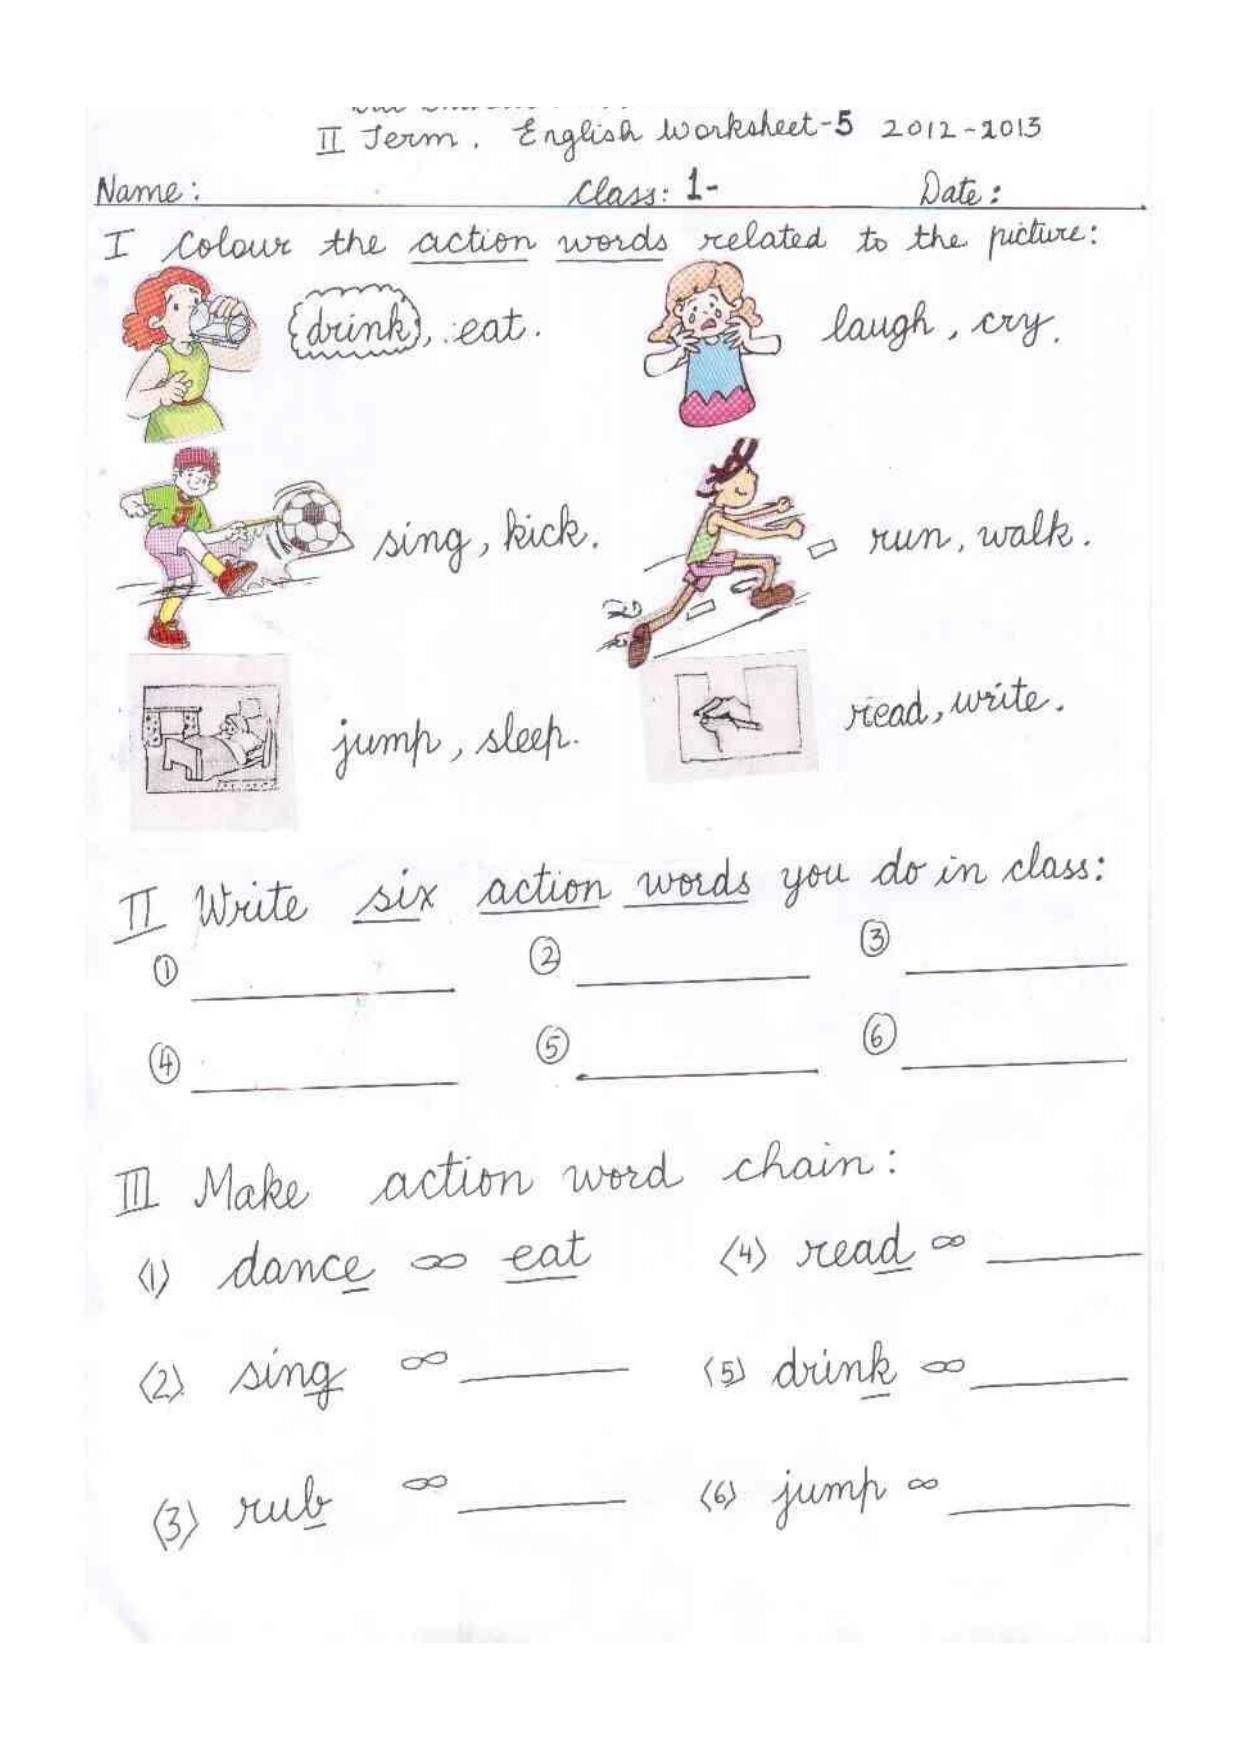 II Term . English Worksheet-5 2012-2013
Name: Class: 1- Date:
I Colour the action words related to the picture:
drink, eat. laugh, cry.
sing, kick. run, walk.
jump, sleep. read, write.
II Write six action words you do in class:
① ② ③
④ ⑤ ⑥
III Make action word chain:
(1) dance ∞ eat (4) read ∞
(2) sing ∞ (5) drink ∞
(3) rub ∞ (6) jump ∞